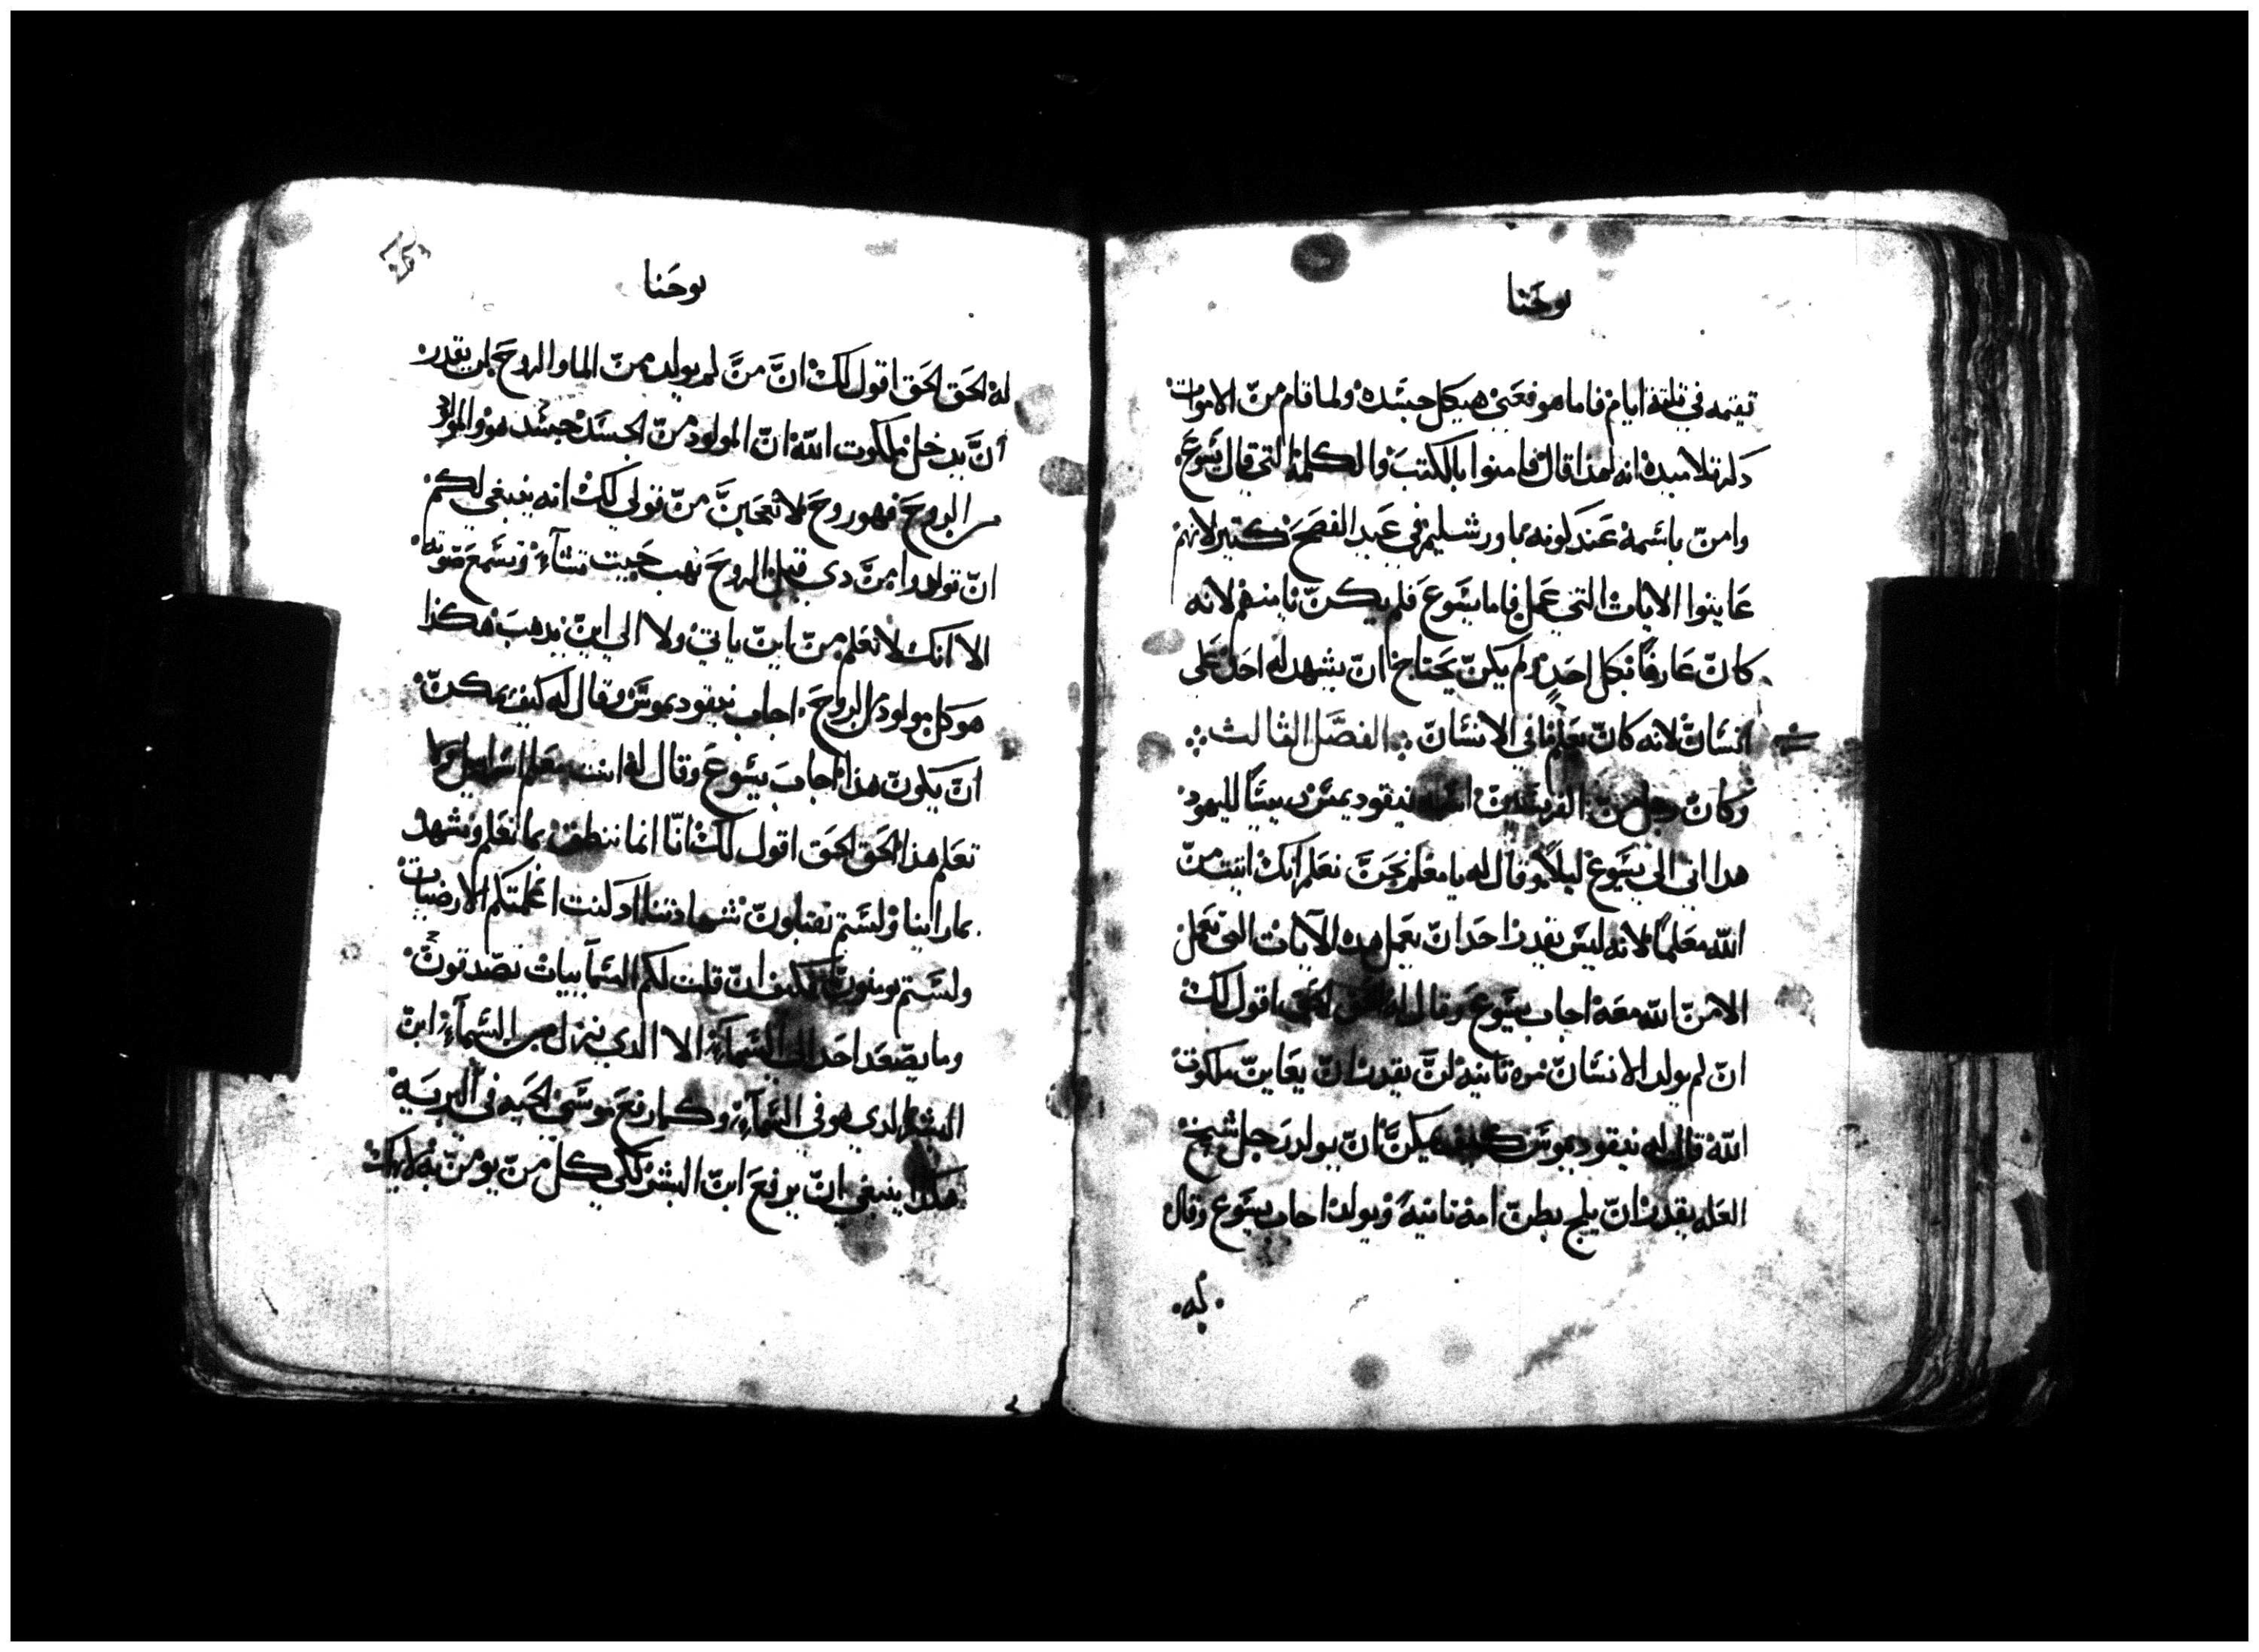 يوحنا
تقيمه في ثلثة ايام فاما هو فعني هيكل جسده ولما قام من الاموات
ذكر تلاميذه انه لهذا قال فامنوا بالكتب والكلمة التي قال يسوع
وامن باسمه عند كونه باورشليم في عيد الفصح كثير لانهم
عاينوا الايات التي عمل فاما يسوع فلم يكن يامنهم لانه
كان عارفا بكل احد ولم يكن يحتاج ان يشهد له احد على
انسان لانه كان في الانسان الفصل الثالث
وكان رجل من نيقوديمس رييسا لليهود
هدا اتى الى يسوع ليلا وقال له يا معلم نحن نعلم انك اتيت من
الله معلما لانه ليس يقدر احد ان يعمل هذه الآيات التي تعمل
الا من الله معه اجاب يسوع وقال له الحق الحق اقول لك
ان لم يولد الانسان مره تانيه لن يقدر ان يعاين ملكوت
الله قال له نيقوديموس كيف يمكن ان يولد رجل شيخ
العله يقدر ان يلج بطن امه تانية ويولد اجاب يسوع وقال
له
يوحنا
له الحق الحق اقول لك ان من لم يولد من الما والروح لن يقدر
ان يدخل ملكوت الله ان المولود من الجسد جسد هو والمولود
من الروح فهو روح لا تعجبن من قولي لك انه ينبغي لكم
ان تولدوا من دي قبل الروح تهب حيت تشآء وتسمع صوته
الا انك لا تعلم من اين ياتي ولا الي اين يدهب هكذا
هو كل مولود من الروح اجاب نيقوديموس وقال له كيف يمكن
ان يكون هذا اجاب يسوع وقال له انت معلم اسراييل وما
تعلم هذا الحق الحق اقول لك انا انما ننطق بما نعلم ونشهد
بما راينا ولستم تقبلون شهادتنا اد كنت اعلمتكم الارضيات
ولستم تومنون فكيف ان قلت لكم السمآييات تصدقون
وما يصعد احد الى السمآء الا الدي نزل من السمآء ابن
البشر الدي هو في السمآء وكما رفع موسى الحيه في البريه
هكدا ينبغي ان يرفع ابن البشر لكي كل من يومن به لا يهلك